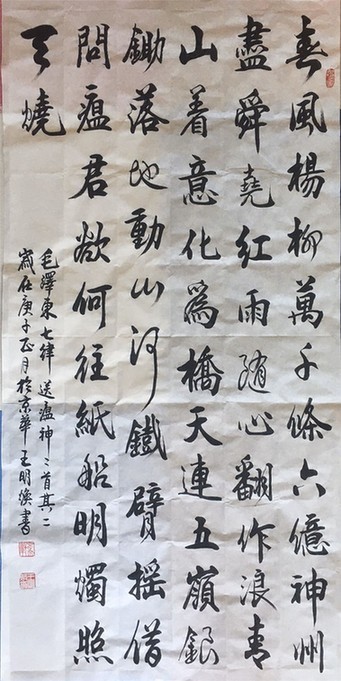 春風楊柳萬千條六億神州
盡舜堯紅雨隨心翻作浪青
山着意化爲橋天連五嶺銀
鋤落地動山河鐵臂搖借
問瘟君欲何往紙船明燭照
天燒
毛澤東七律送瘟神二首其二
歲在庚子正月於京華王明書